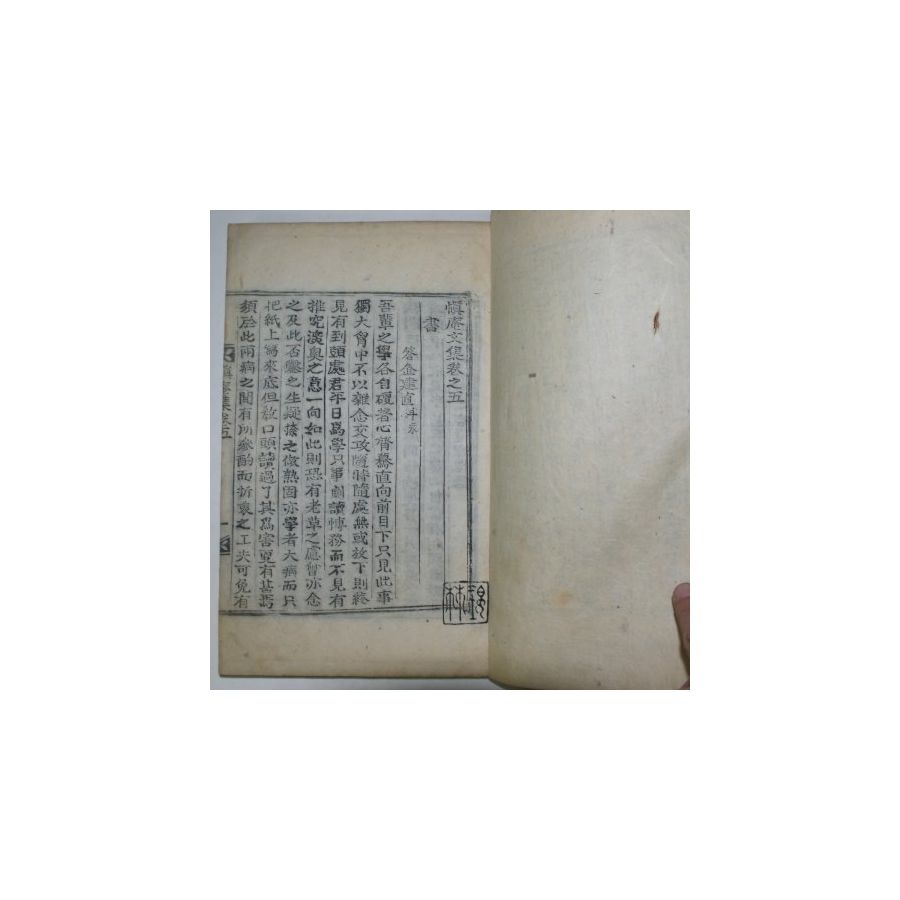 愼庵文集卷之五
書
答金建直
吾輩之學各自硬着心膂驀直向前目下只見此事
獨大胷中不以雜念交攻隨時隨處無或放下則終
見有到頭處君平日爲學只事劇讀愽務而不見有
推究深奧之意一向如此則恐有老草之慮暫亦念
之及此否鑿之生疑擔之倣熟固亦學者大病而只
把紙上爲來底但放口頭讀過了其爲害更有甚焉
須於此兩病之間有所參酌而折衷之工夫可免有
愼庵集卷五
一